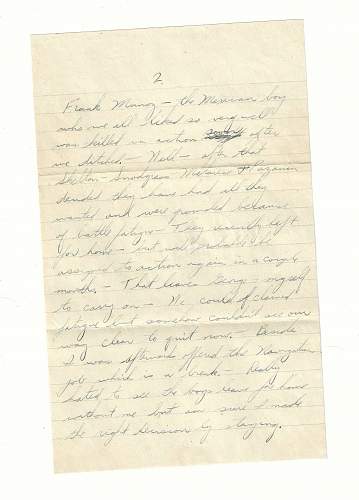 2.
Frank Munoz - the Mexican boy
who we all liked so very well
was killed in action after
we ditched. - Well - after that
Shelton - Snodgrass
decided they have had all they
wanted and were grounded because
of battle fatigue - They recently left
for home - but will probably be
assigned to action again in a couple
months. - That leaves - myself
to carry on - We could of claimed
fatigue but somehow couldn't see our
way clear to quit now. - Beside
I was afterwards offered the Navigation
job which is a break - Really
hated to see the boys leave for home
without me but am sure I made
the right decision by staying.